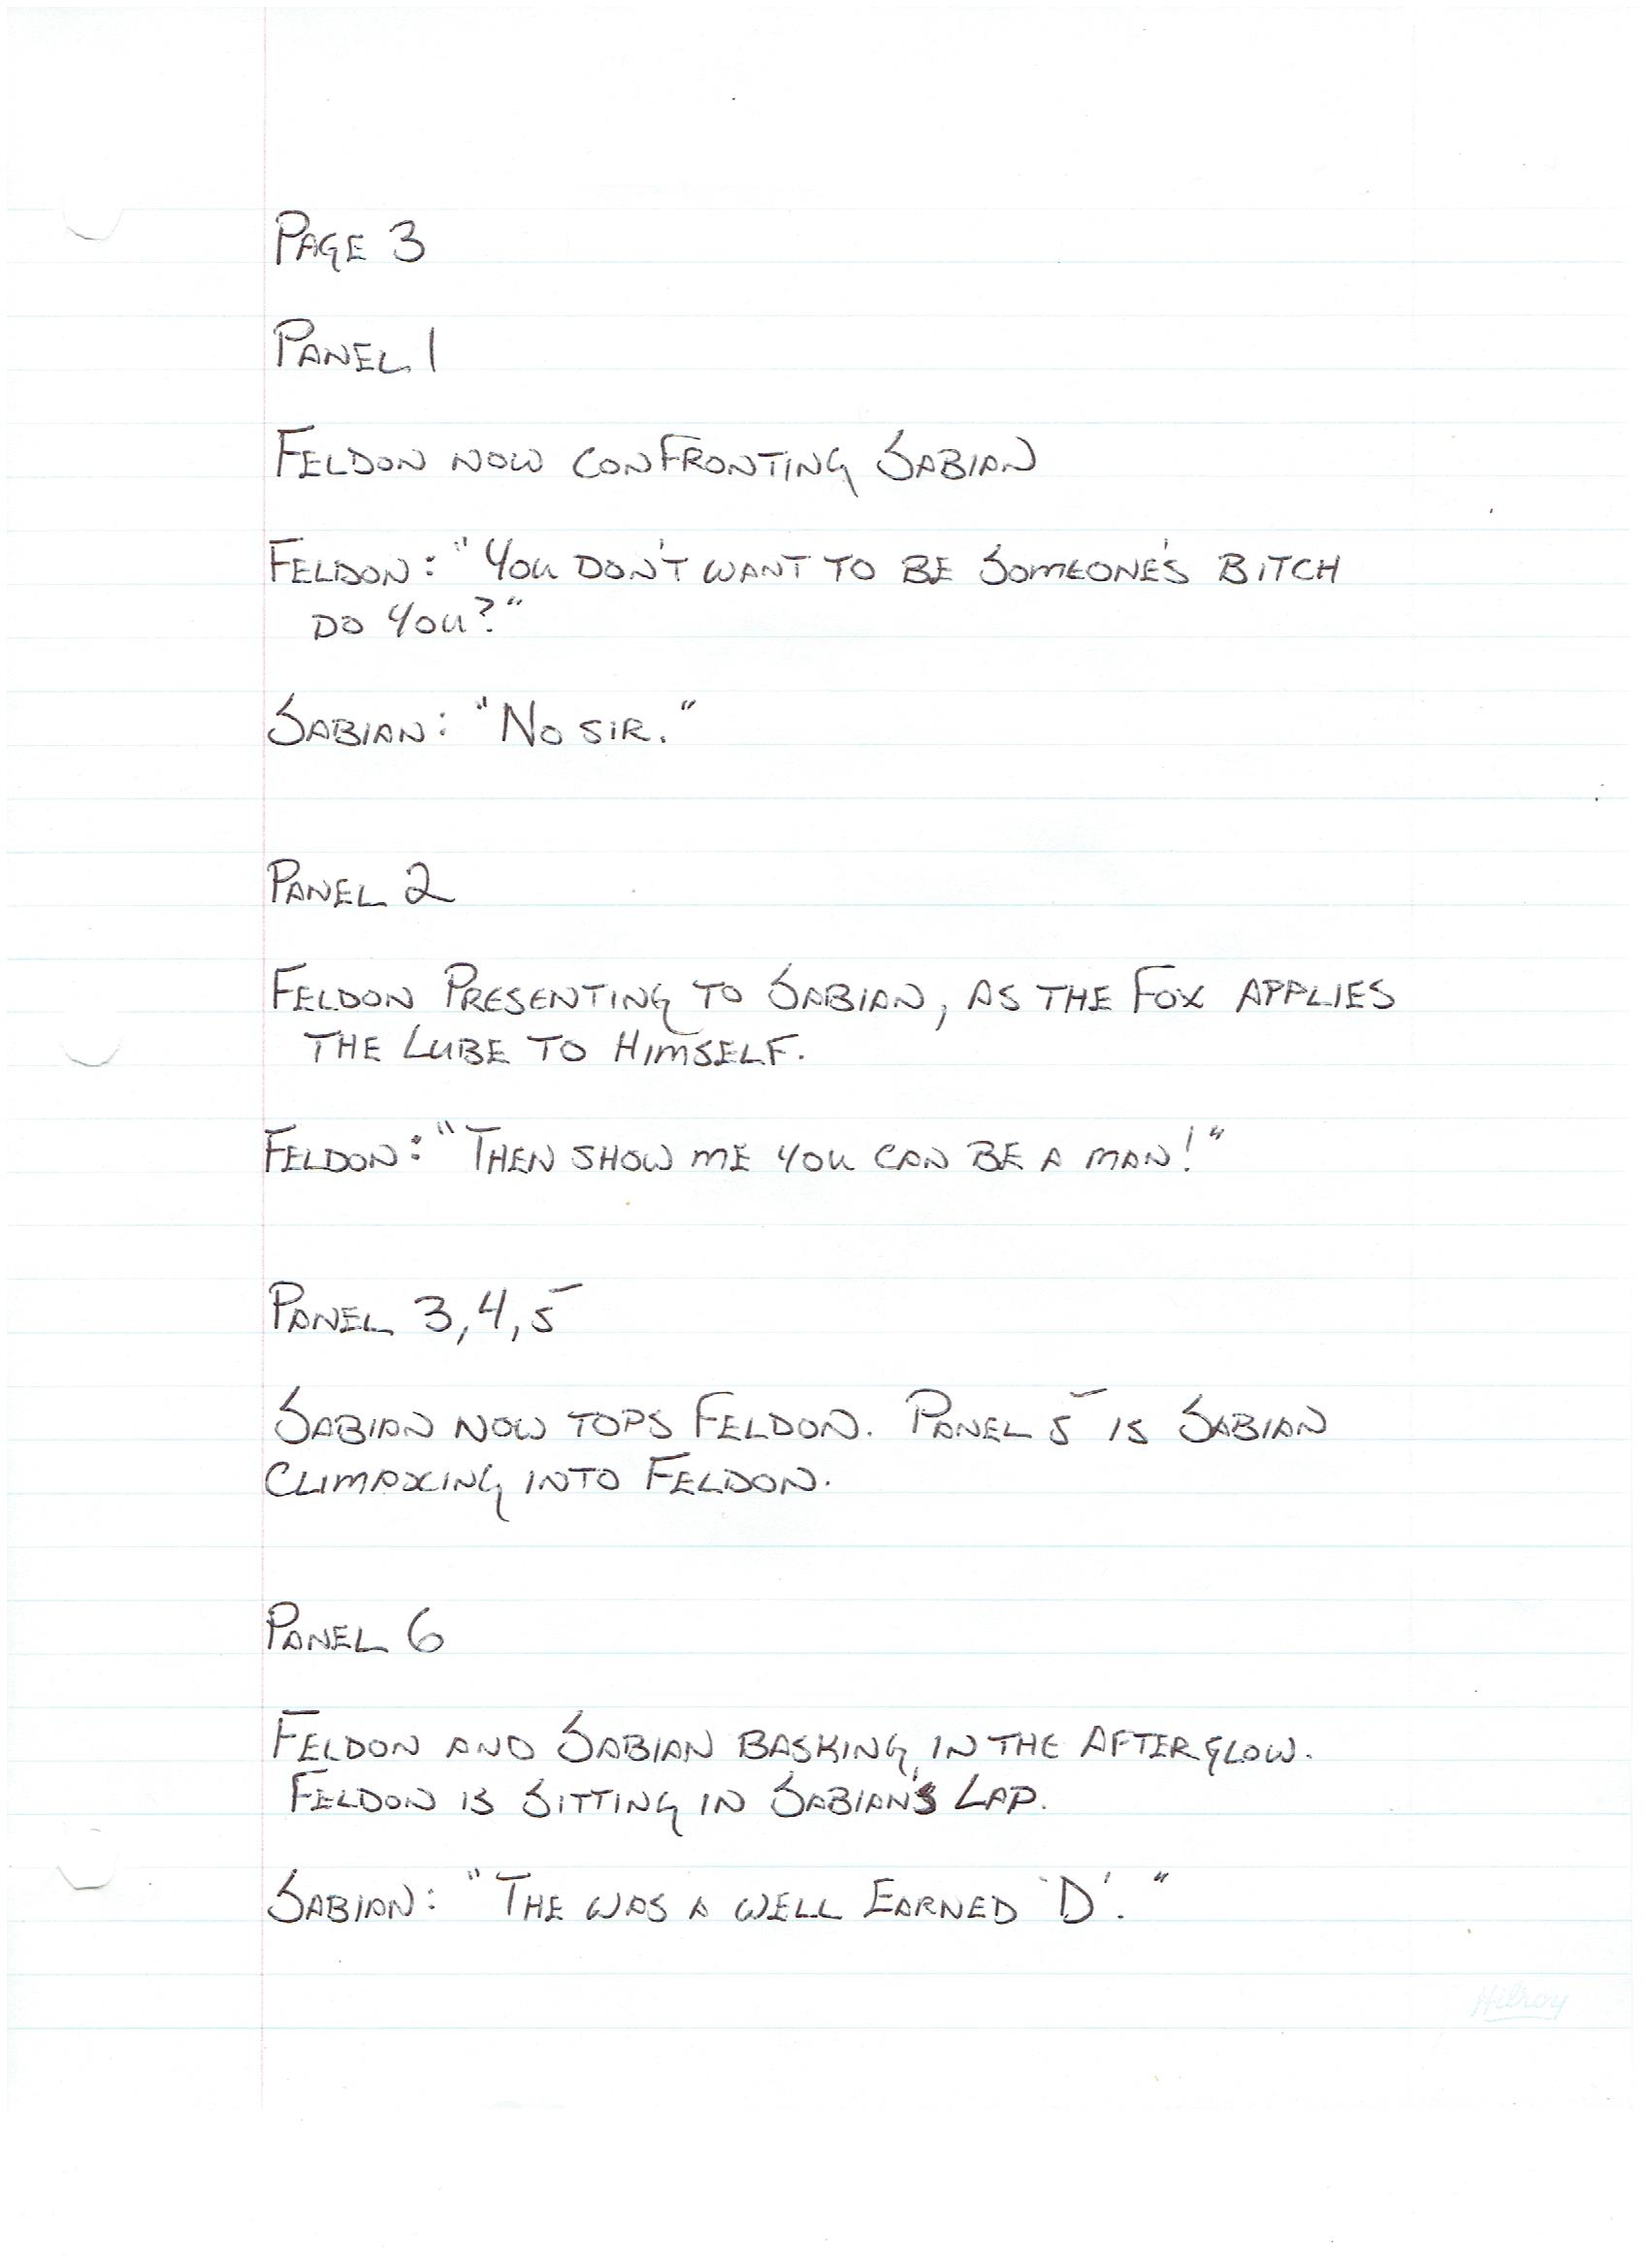 PAGE 3
PANEL 1
FELDON NOW CONFRONTING SABIAN
FELDON: "YOU DON'T WANT TO BE SOMEONE'S BITCH
DO YOU?"
SABIAN: "NO SIR."
PANEL 2
FELDON PRESENTING TO SABIAN, AS THE FOX APPLIES
THE LUBE TO HIMSELF.
FELDON: "THEN SHOW ME YOU CAN BE A MAN!"
PANEL 3,4,5
SABIAN NOW TOPS FELDON. PANEL 5 IS SABIAN
CLIMAXING INTO FELDON.
PANEL 6
FELDON AND SABIAN BASKING IN THE AFTERGLOW.
FELDON IS SITTING IN SABIAN'S LAP.
SABIAN: "THE WAS A WELL EARNED 'D'."
Hilroy